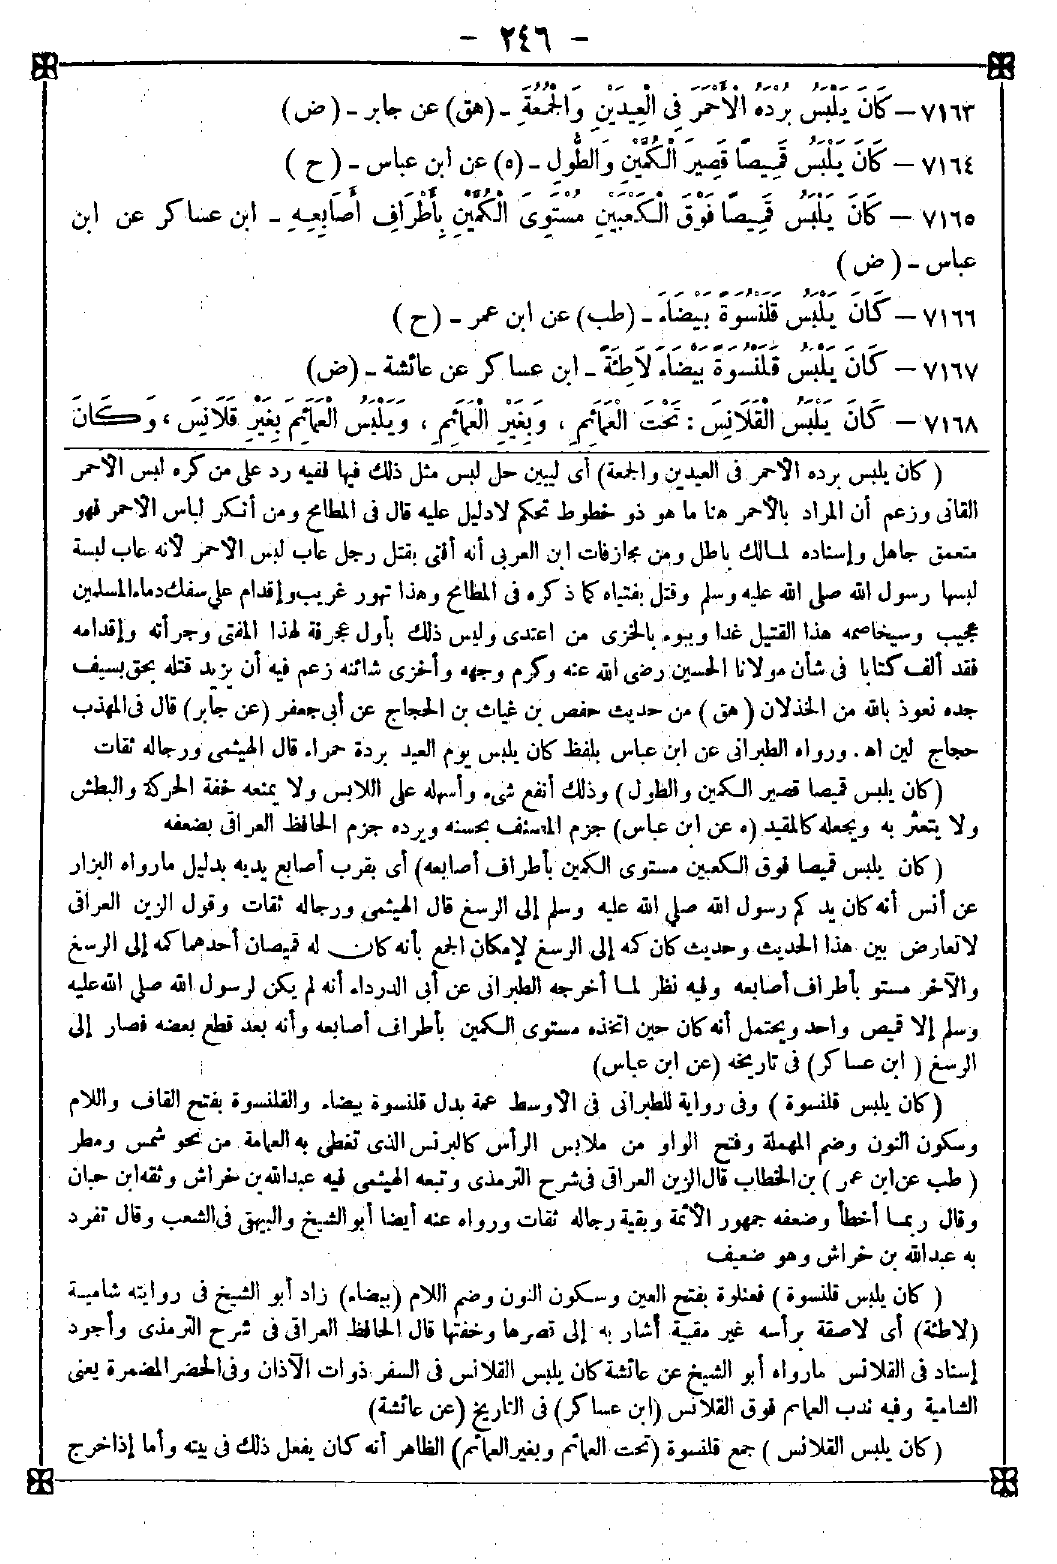 - ٢٤٦ -
٧١٦٣ – كَانَ يَلْبَسُ بُرْدَهُ الْأَحْمَرَ فِى الْعِيدَيْنِ وَالْجُمُعَةِ - (هق) عن جابر - (ض)
٧١٦٤ – كَانَ يَلْبَسُ قَمِيصًا قَصِيرَ الْكُمَّيْنِ وَالطُّولِ - (ه) عن ابن عباس - (ح)
٧١٦٥ – كَانَ يَلْبَسُ قَمِيصًا فَوْقَ الْكَعْبَيْنِ مُسْتَوِىَ الْكُمَّيْنِ بِأَطْرَافِ أَصَابِعِهِ - ابن عساكر عن ابن
عباس - (ض)
٧١٦٦ – كَانَ يَلْبَسُ قَلَنْسُوَةً بَيْضَاءَ - (طب) عن ابن عمر - (ح)
٧١٦٧ – كَانَ يَلْبَسُ قَلَنْسُوَةً بَيْضَاءَ لَاطِئَةً - ابن عساكر عن عائشة - (ض)
٧١٦٨ – كَانَ يَلْبَسُ الْقَلَانِسَ : تَحْتَ الْعَمَائِمِ ، وَبِغَيْرِ الْعَمَائِمِ ، وَيَلْبَسُ الْعَمَائِمَ بِغَيْرِ قَلَانِسَ ، وَكَانَ
(كان يلبس برده الأحمر فى العيدين والجمعة) أى ليبين حل لبس مثل ذلك فيها ففيه رد على من كره لبس الأحمر
القانى وزعم أن المراد بالأحمر هنا ما هو ذو خطوط تحكم لادليل عليه قال فى المطامح ومن أنكر لباس الأحمر فهو
متعمق جاهل وإسناده لمالك باطل ومن مجازفات ابن العربى أنه أفتى بقتل رجل عاب لبس الأحمر لأنه عاب لبسة
لبسها رسول الله صلى الله عليه وسلم وقتل بفتياه كما ذكره فى المطامح وهذا تهور غريب وإقدام على سفك دماء المسلمين
عجيب وسيخاصمه هذا القتيل غدا ويبوء بالخزى من اعتدى وليس ذلك بأول عجرفة لهذا المفتى وجرأته وإقدامه
فقد ألف كتابا فى شأن مولانا الحسين رضى الله عنه وكرم وجهه وأخزى شائنه زعم فيه أن يزيد قتله بحق بسيف
جده نعوذ بالله من الخذلان (هق) من حديث حفص بن غياث بن الحجاج عن أبى جعفر (عن جابر) قال فى المهذب
حجاج لين اه. ورواه الطبرانى عن ابن عباس بلفظ كان يلبس يوم العيد بردة حمراء قال الهيثمى ورجاله ثقات
(كان يلبس قميصا قصير الكمين والطول) وذلك أنفع شىء وأسهله على اللابس ولا يمنعه خفة الحركة والبطش
ولا يتعثر به ويجعله كالمقيد (ه عن ابن عباس) جزم المصنف بحسنه ويرده جزم الحافظ العراقى بضعفه
(كان يلبس قميصا فوق الكعبين مستوى الكمين بأطراف أصابعه) أى بقرب أصابع يديه بدليل مارواه البزار
عن أنس أنه كان يد كم رسول الله صلى الله عليه وسلم إلى الرسغ قال الهيثمى ورجاله ثقات وقول الزين العراقى
لاتعارض بين هذا الحديث وحديث كان كمه إلى الرسغ لإمكان الجمع بأنه كان له قميصان أحدهما كمه إلى الرسغ
والآخر مستو بأطراف أصابعه وفيه نظر لما أخرجه الطبرانى عن أبى الدرداء أنه لم يكن لرسول الله صلى الله عليه
وسلم إلا قميص واحد ويحتمل أنه كان حين اتخذه مستوى الكمين بأطراف أصابعه وأنه بعد قطع بعضه فصار إلى
الرسغ (ابن عساكر) فى تاريخه (عن ابن عباس)
(كان يلبس قلنسوة) وفى رواية للطبرانى فى الأوسط عمة بدل قلنسوة بيضاء والقلنسوة بفتح القاف واللام
وسكون النون وضم المهملة وفتح الواو من ملابس الرأس كالبرنس الذى تغطى به العمامة من نحو شمس ومطر
(طب عن ابن عمر) بن الخطاب قال الزين العراقى فى شرح الترمذى وتبعه الهيثمى فيه عبدالله بن خراش وثقه ابن حبان
وقال ربما أخطأ وضعفه جمهور الأئمة وبقية رجاله ثقات ورواه عنه أيضا أبو الشيخ والبيهقى فى الشعب وقال تفرد
به عبدالله بن خراش وهو ضعيف
(كان يلبس قلنسوة) فعنلوة بفتح العين وسكون النون وضم اللام (بيضاء) زاد أبو الشيخ فى روايته شامية
(لاطئة) أى لاصقة برأسه غير مقبية أشار به إلى قصرها وخفتها قال الحافظ العراقى فى شرح الترمذى وأجود
إسناد فى القلانس مارواه أبو الشيخ عن عائشة كان يلبس القلانس فى السفر ذوات الآذان وفى الحضر المضمرة يعنى
الشامية وفيه ندب العمائم فوق القلانس (ابن عساكر) فى التاريخ (عن عائشة)
(كان يلبس القلانس) جمع قلنسوة (تحت العمائم وبغير العمائم) الظاهر أنه كان يفعل ذلك فى بيته وأما إذا خرج